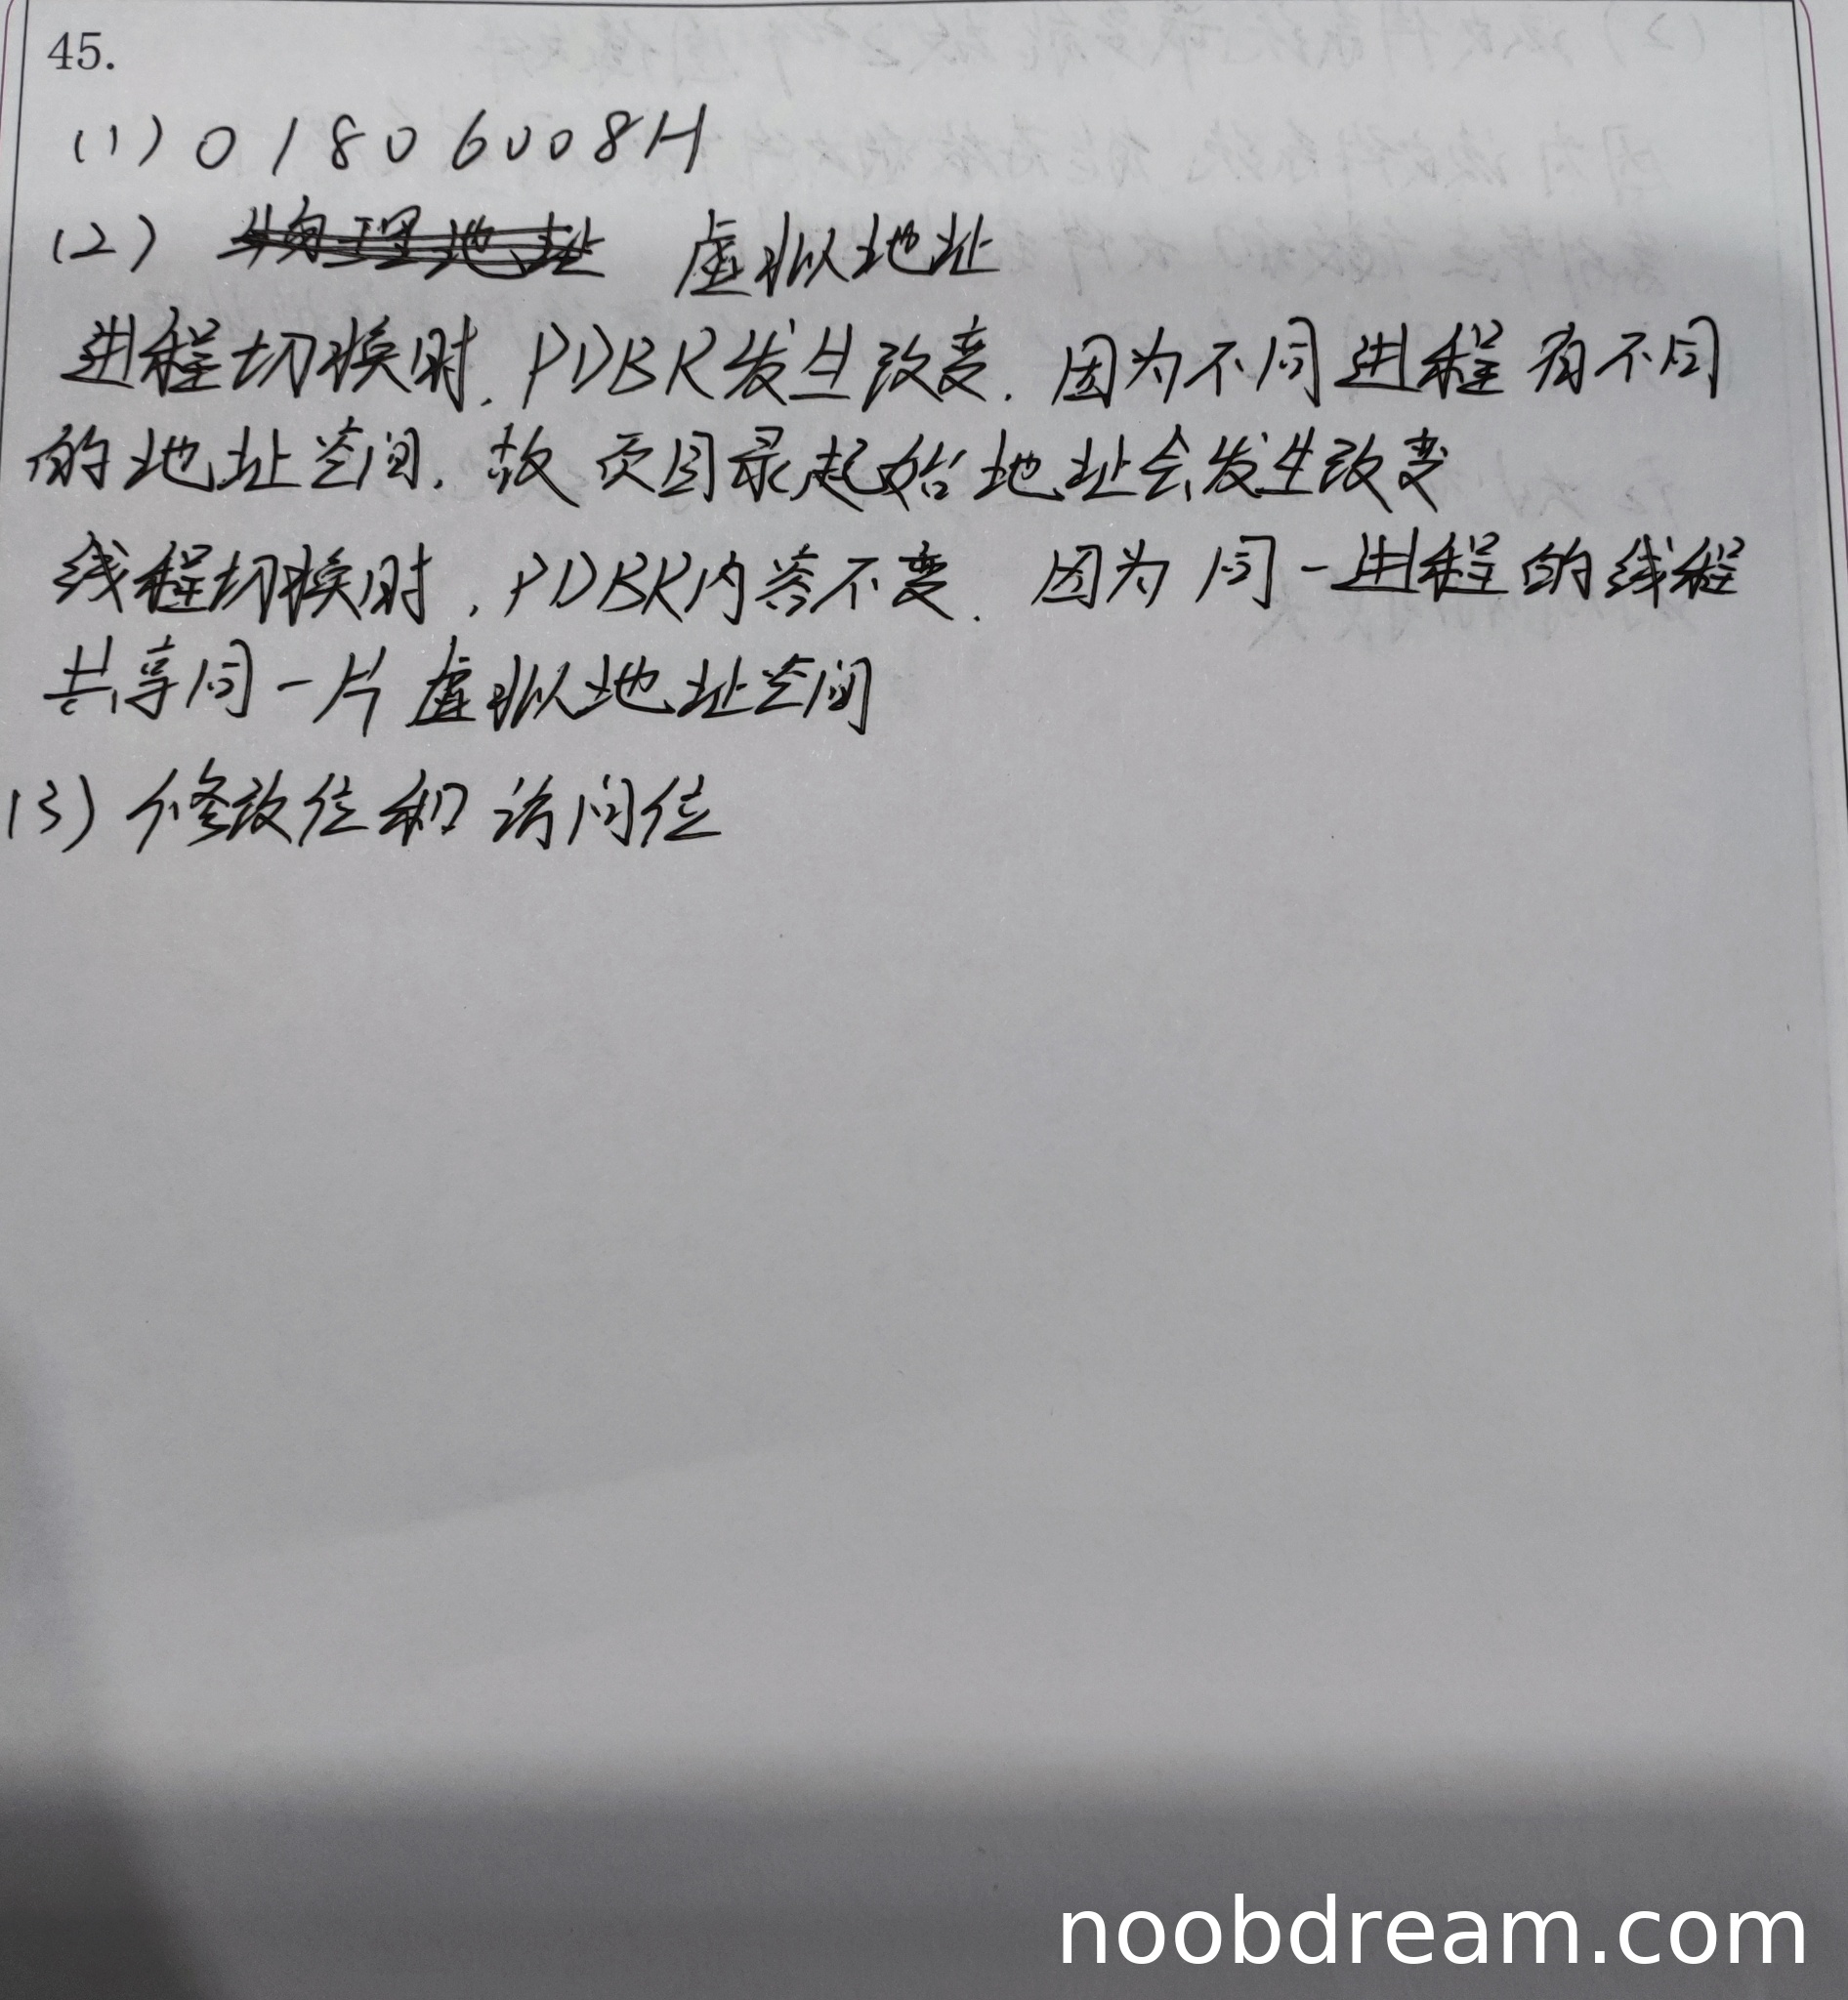 45.
(1) 01806008H
(2) 物理地址 虚拟地址
进程切换时,PDBR发生改变. 因为不同进程有不同
的地址空间. 故页目录起始地址会发生改变
线程切换时,PDBR内容不变. 因为同一进程的线程
共享同一片虚拟地址空间
(3) 修改位和访问位
noobdream.com